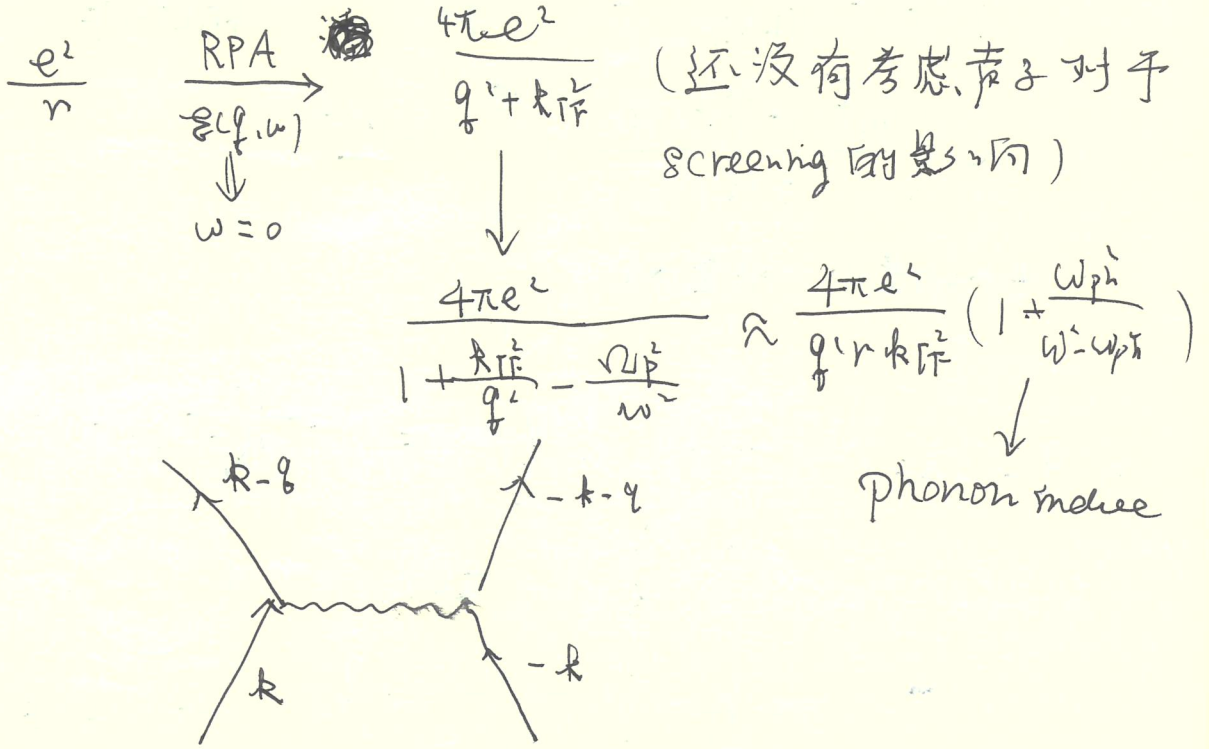 e²/r RPA→ ε(q,ω) ⇓ ω=0 4πe²/(q²+k_TF²) (还没有考虑声子对于
screening 的影响)
↓
4πe²/(1+k_TF²/q²-Ωp²/ω²) ≈ 4πe²/(q²+k_TF²) (1+ω_ph²/(ω²-ω_ph²))
↓
phonon induce
k-q
-k-q
k
-k